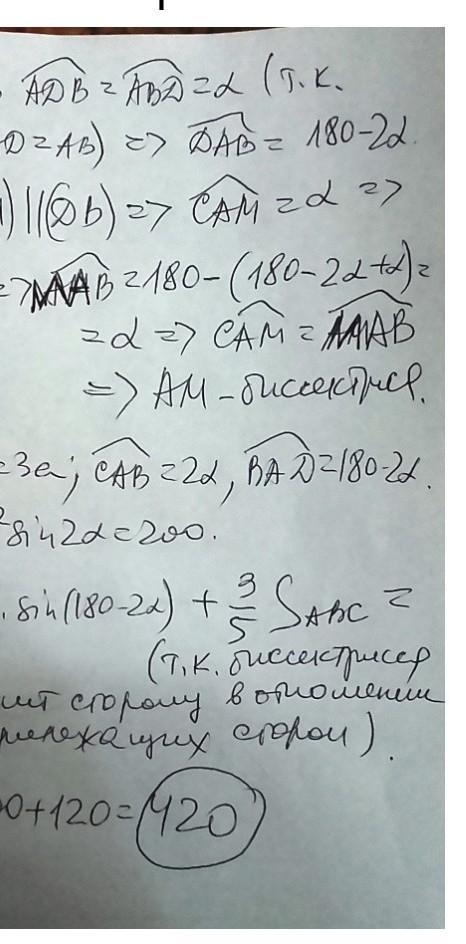 ADB = ABD = α (т.к.
D = AB) => DAB = 180-2α.
) || (DB) => CAM = α =>
=> MAB = 180-(180-2α+α) =
= α => CAM = MAB
=> AM - биссектриса.
=3a; CAB = 2α, BAD = 180-2α.
² sin2α = 200.
. sin(180-2α) + 3/5 S_ABC =
(т.к. биссектриса
ит сторону в отношении
рилежащих сторон).
0+120 = 420